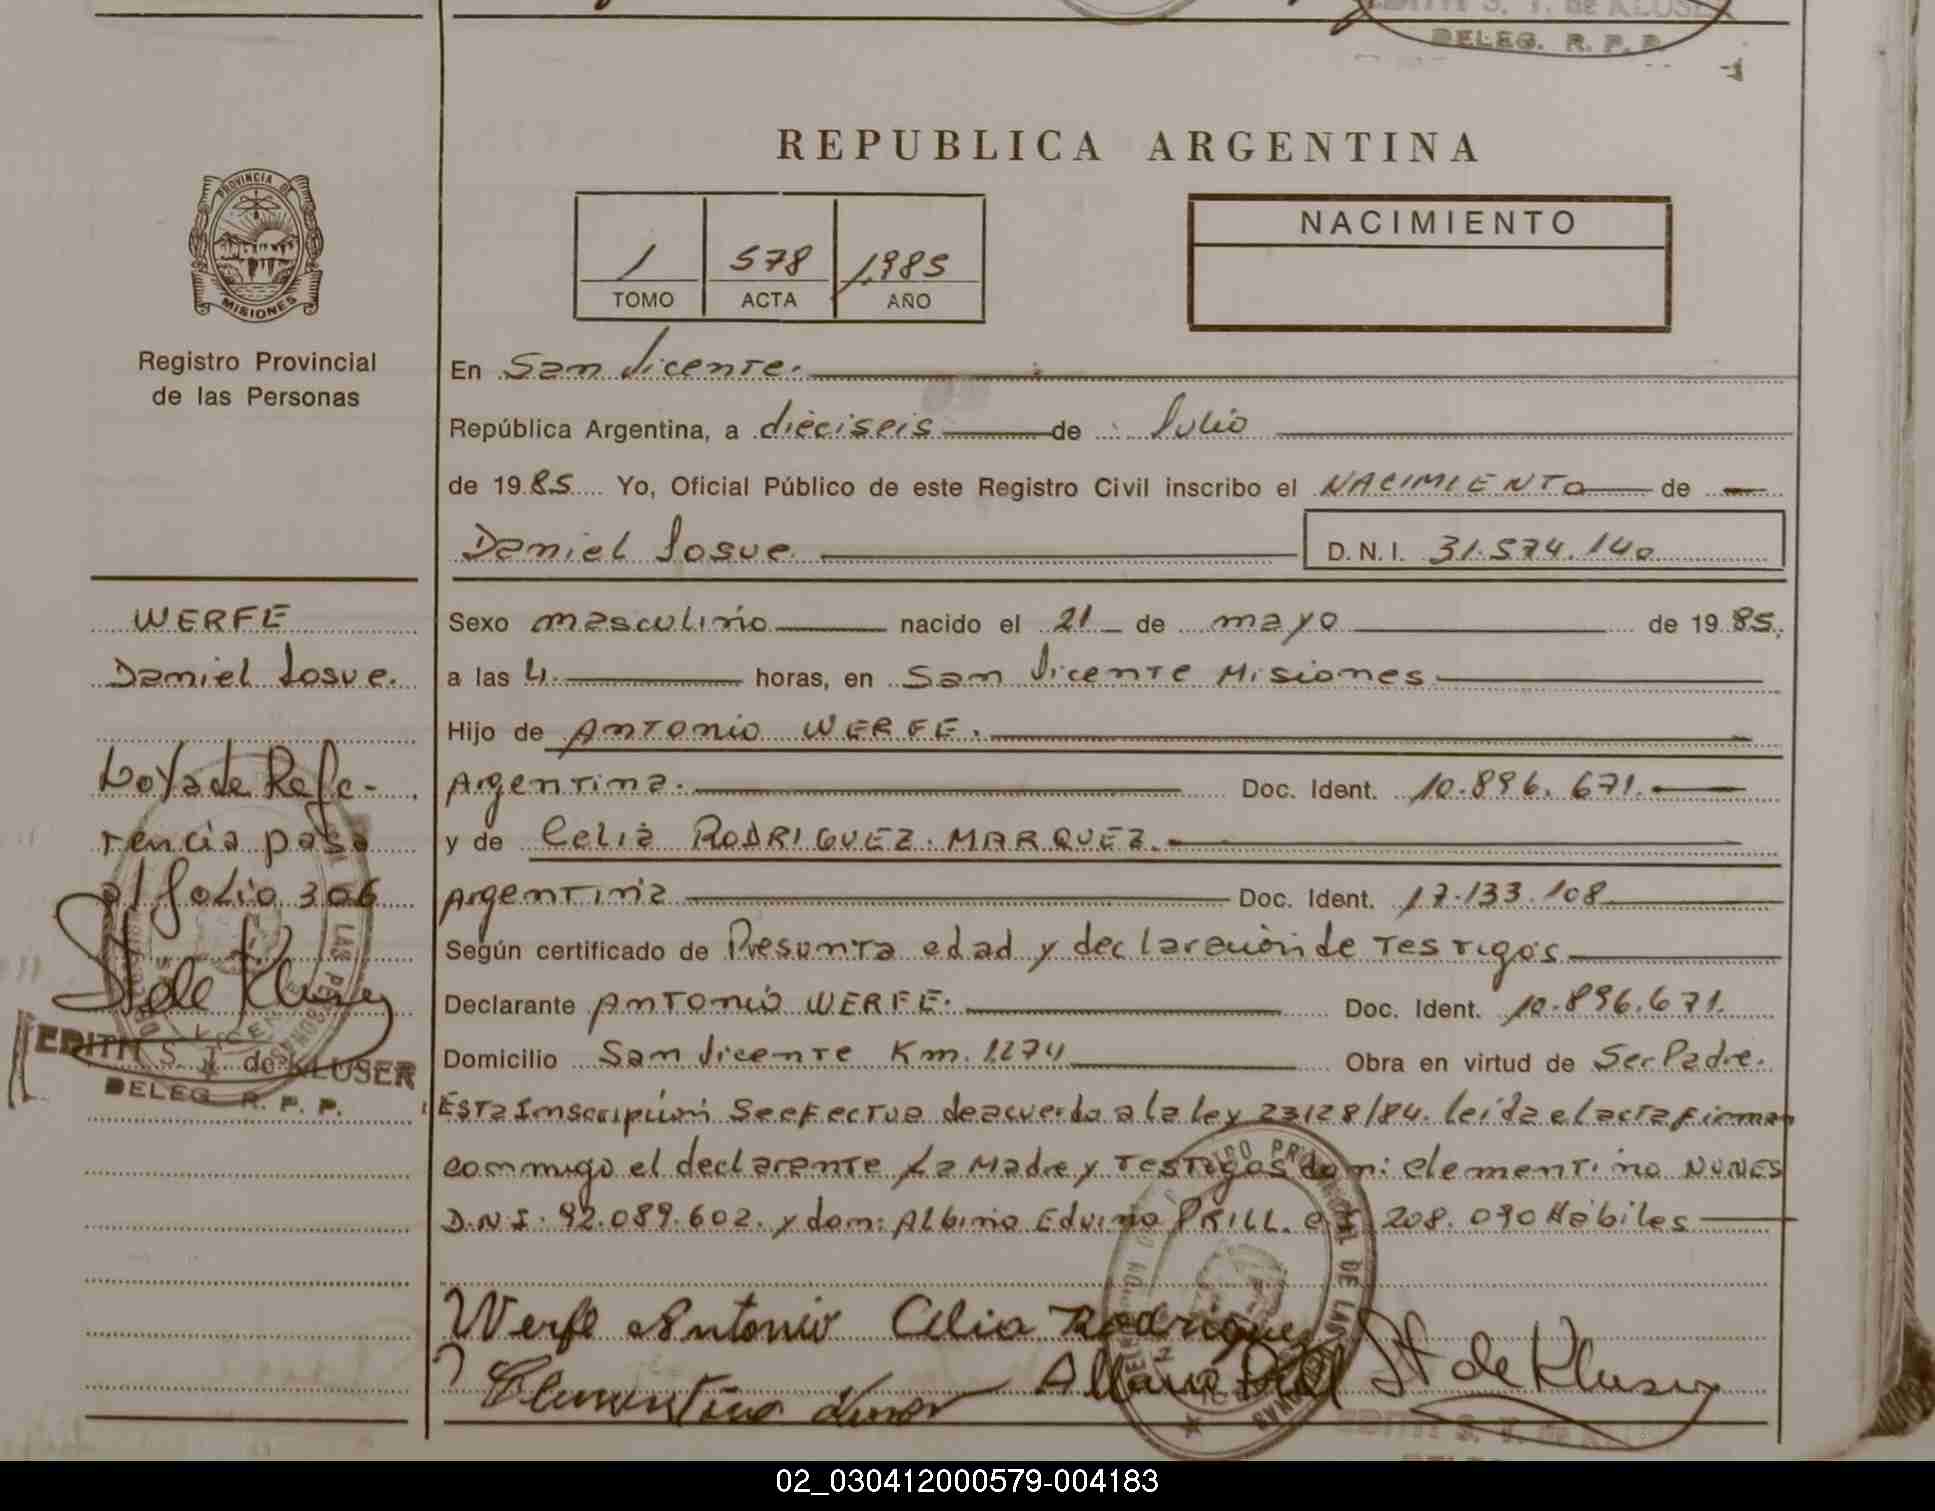 EDITH S. T. de KLUSER
DELEG. R. P. P.
REPUBLICA ARGENTINA
PROVINCIA DE
MISIONES
Registro Provincial
de las Personas
1 578 1985
TOMO ACTA AÑO
NACIMIENTO
En San Vicente.
República Argentina, a dieciseis de Julio
de 1985 Yo, Oficial Público de este Registro Civil inscribo el NACIMIENTO de
Daniel Josue. D.N.I. 31.574.140
WERFE
Daniel Josue.
Hoya de Refe-
rencia pasa
al folio 306
St de Kluser
EDITH S. T. de KLUSER
DELEG. R. P. P.
Sexo masculino nacido el 21 de mayo de 1985,
a las 4. horas, en San Vicente Misiones
Hijo de Antonio WERFE.
Argentina. Doc. Ident. 10.896.671.
y de Celia RODRIGUEZ. MARQUEZ.
Argentina Doc. Ident. 17.133.108
Según certificado de Presunta edad y declaración de Testigos
Declarante Antonio WERFE. Doc. Ident. 10.896.671.
Domicilio San Vicente Km. 1274 Obra en virtud de Ser Padre.
Esta Inscripción Se efectua de acuerdo a la ley 23128/84. leida el acta firman
conmigo el declarante La Madre y Testigos don: Clementino NUNES
D.N.I. 92.089.602. y don: Albino Edvino PRILL. 208.090 Habiles
Werfe Antonio Celia Rodriguez
Clementino Nunes Albino Prill St de Kluser
EDITH S. T. de
02_030412000579-004183